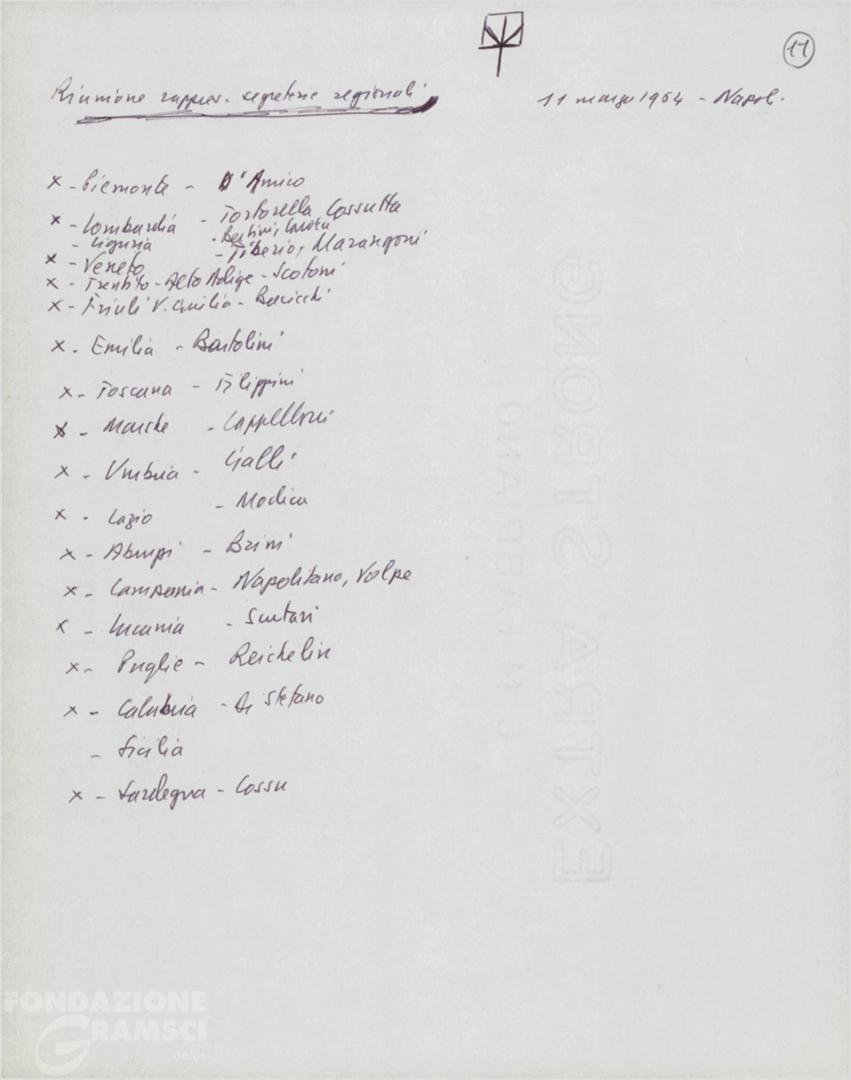 11
Riunione rappres. segreterie regionali
11 marzo 1964 - Napoli.
x - Piemonte - D'Amico
x - Lombardia - Tortorella Cossutta
- Liguria - Bertini,
x - Veneto - Tiberio, Marangoni
x - Trentito-Alto Adige - Scotoni
x - Friuli V. Giulia - Bacicchi
x - Emilia - Bartolini
x - Toscana - Filippini
x - Marche - Cappelloni
x - Umbria - Galli
x - Lazio - Modica
x - Abruzzi - Brini
x - Campania - Napolitano, Volpe
x - Lucania - Scutari
x - Puglie - Reichelin
x - Calabria - Di Stefano
- Sicilia
x - Sardegna - Cossu
EXTRA STRONG
C M FABRIANO
FONDAZIONE
GRAMSCI
onlus